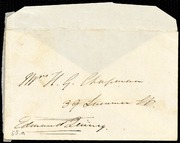 Mrs H. G. Chapman
39 Summer St.
Edmund Quincy